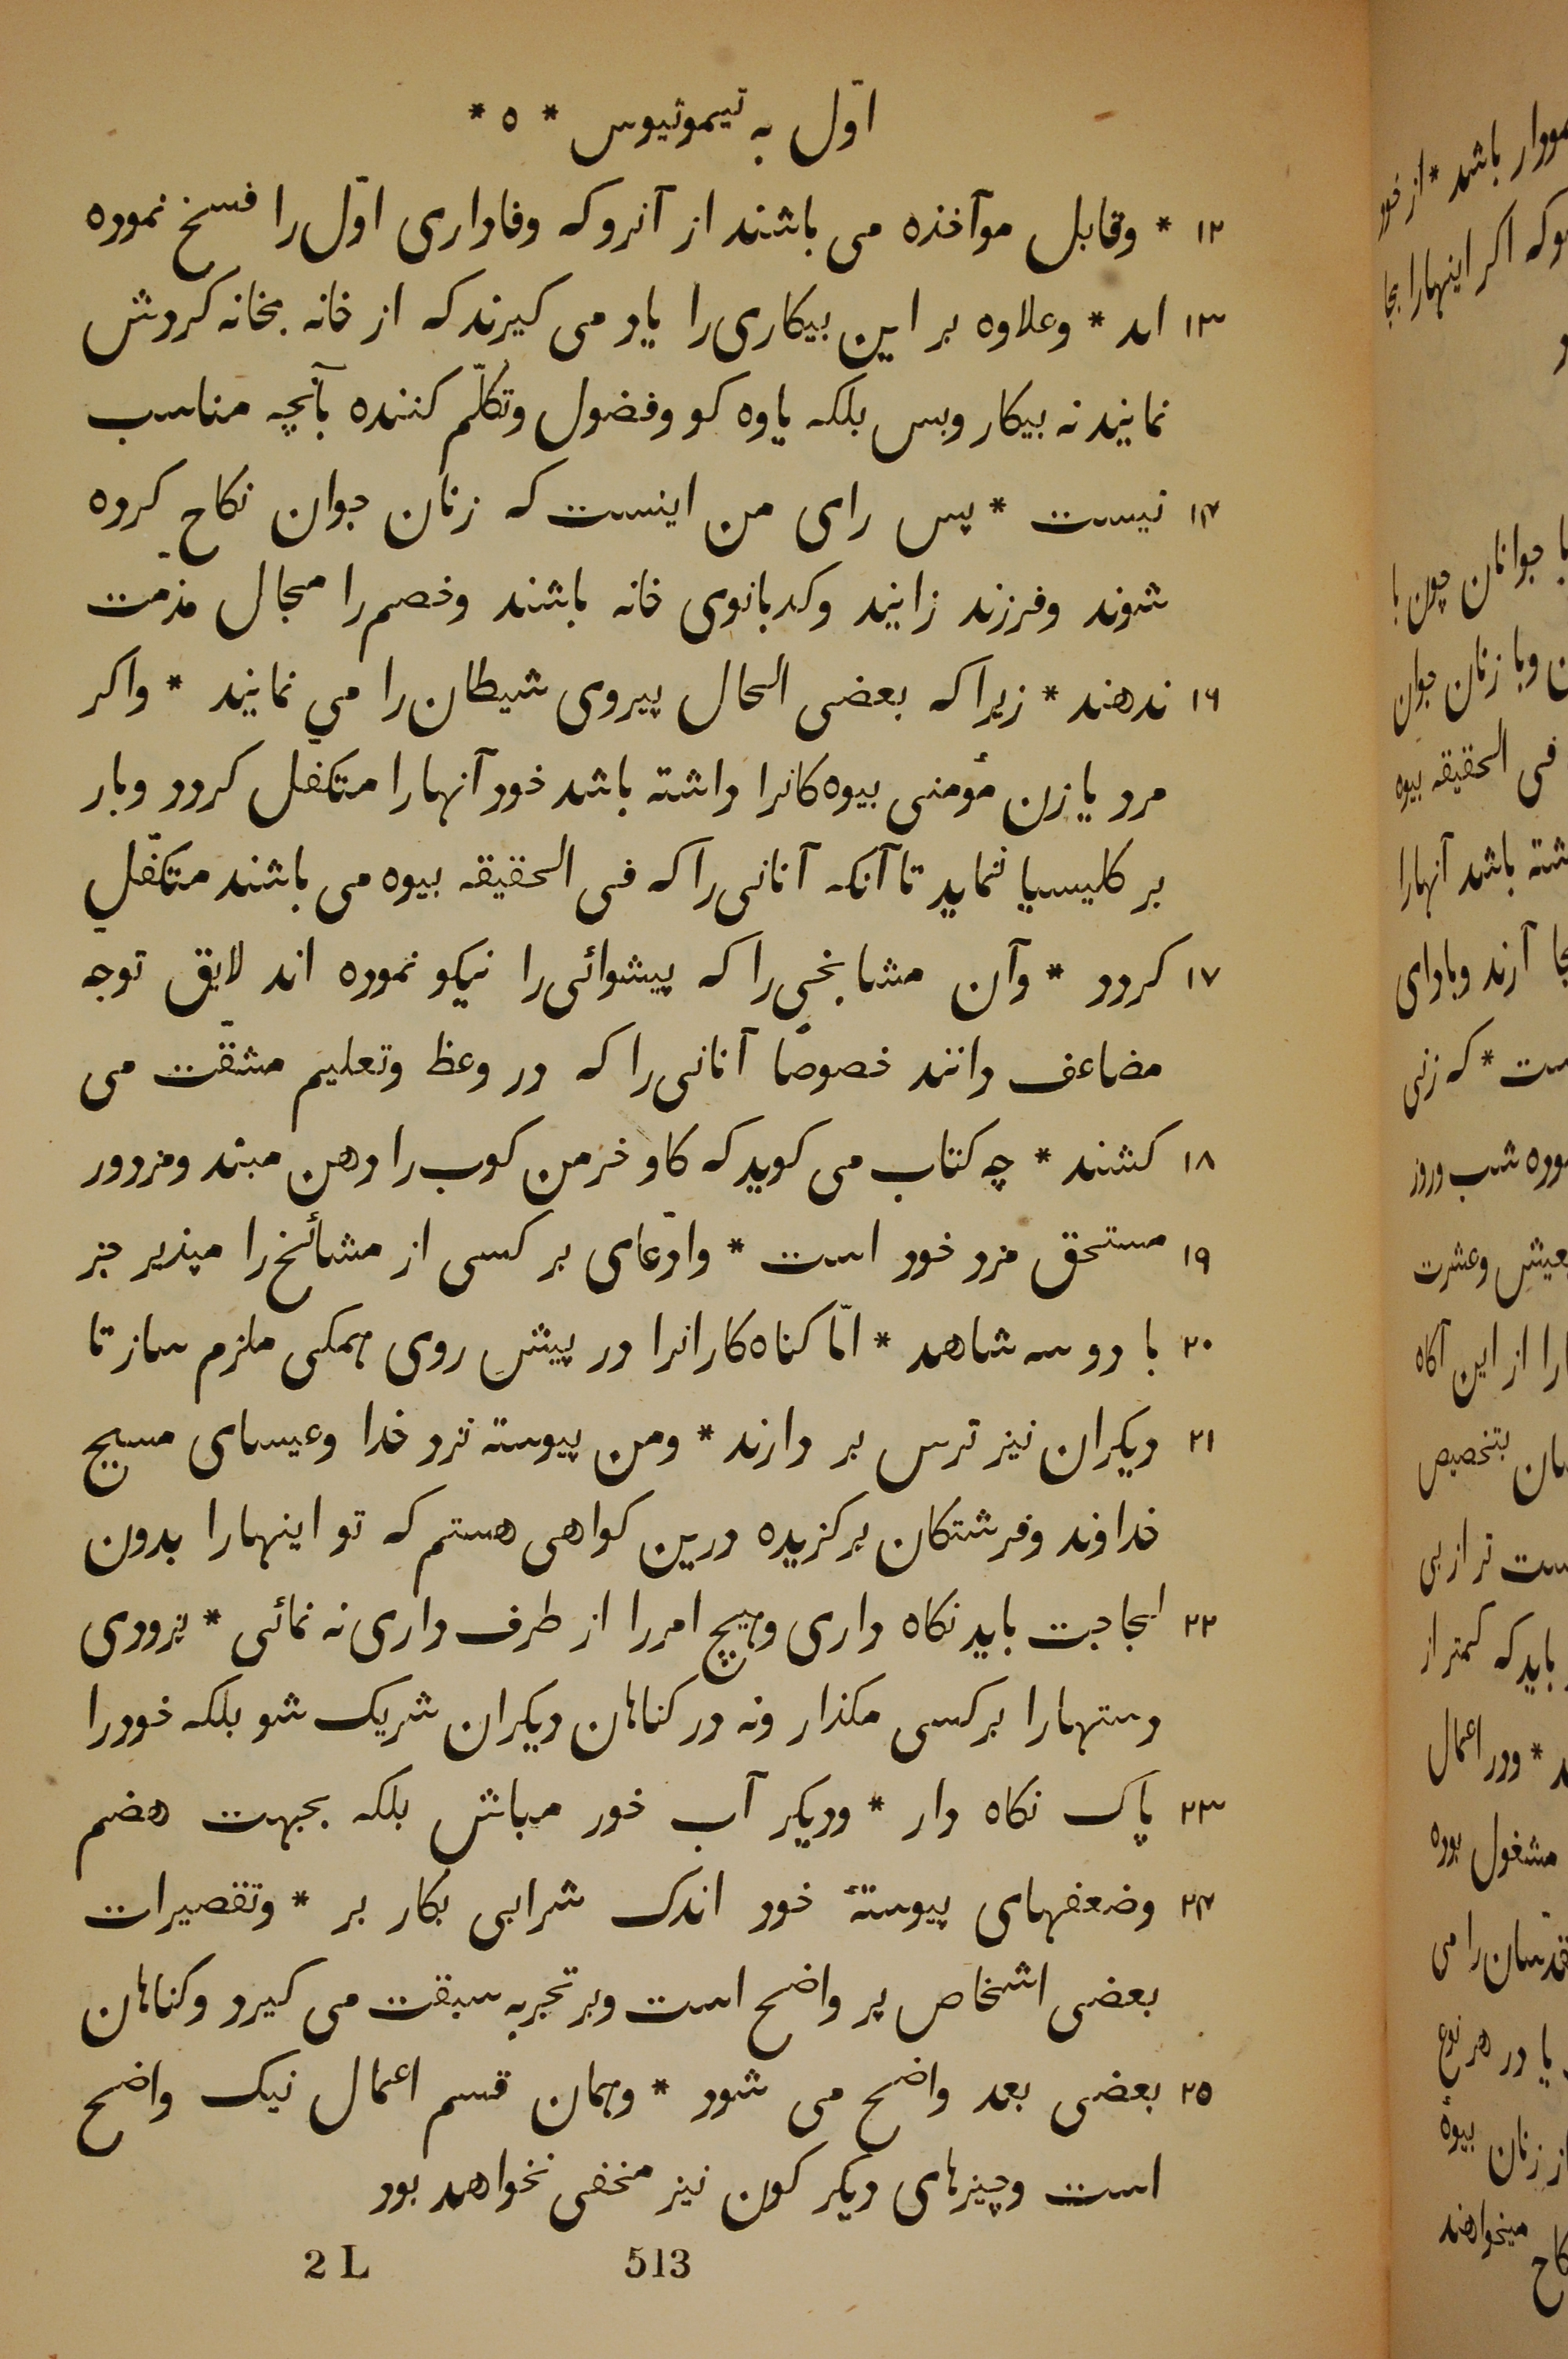 اوّل به تیموتیوس * ۵ *
۱۲ * وقابل موآخذه می باشند از آنرو که وفاداری اوّل را فسخ نموده
۱۳ اند * وعلاوه بر این بیکاری را یاد می کیرند که از خانه بخانه کردش
نمایند نه بیکار وبس بلکه یاوه کو وفضول وتکلّم کننده بآنچه مناسب
۱۴ نیست * پس رای من اینست که زنان جوان نکاح کرده
شوند وفرزند زایند وکدبانوی خانه باشند وخصم را مجال مذمّت
۱۶ ندهند * زیرا که بعضی الحال پیروی شیطان را می نمایند * واکر
مرد یا زن مؤمنی بیوه کانرا داشته باشد خود آنها را متکفّل کردد وبار
بر کلیسیا ننماید تا آنکه آنانی را که فی الحقیقه بیوه می باشند متکفّل
۱۷ کردد * وآن مشایخی را که پیشوائی را نیکو نموده اند لایق توجّه
مضاعف دانند خصوصًا آنانی را که در وعظ وتعلیم مشقّت می
۱۸ کشند * چه کتاب می کوید که کاو خرمن کوب را دهن مبند ومزدور
۱۹ مستحق مزد خود است * وادّعای بر کسی از مشائخ را مپذیر جز
۲۰ با دو سه شاهد * امّا کناه کارانرا در پیش روی همکی ملزم ساز تا
۲۱ دیکران نیز ترس بر دارند * ومن پیوسته نزد خدا وعیسای مسیح
خداوند وفرشتکان برکزیده درین کواهی هستم که تو اینها را بدون
۲۲ لجاجت باید نکاه داری وهیچ امر را از طرف داری نه نمائی * بزودی
دستها را بر کسی مکذار ونه در کناهان دیکران شریک شو بلکه خود را
۲۳ پاک نکاه دار * ودیکر آب خور مباش بلکه بجهت هضم
۲۴ وضعفهای پیوستهٔ خود اندک شرابی بکار بر * وتقصیرات
بعضی اشخاص پر واضح است وبر تجربه سبقت می کیرد وکناهان
۲۵ بعضی بعد واضح می شود * وهمان قسم اعمال نیک واضح
است وچیزهای دیکر کون نیز مخفی نخواهد بود
2 L 513